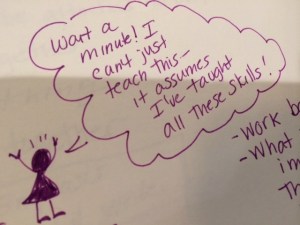 Wait a
minute! I
can't just
teach this—
it assumes
I've taught
all these skills!
-Work be
-What
im
Th